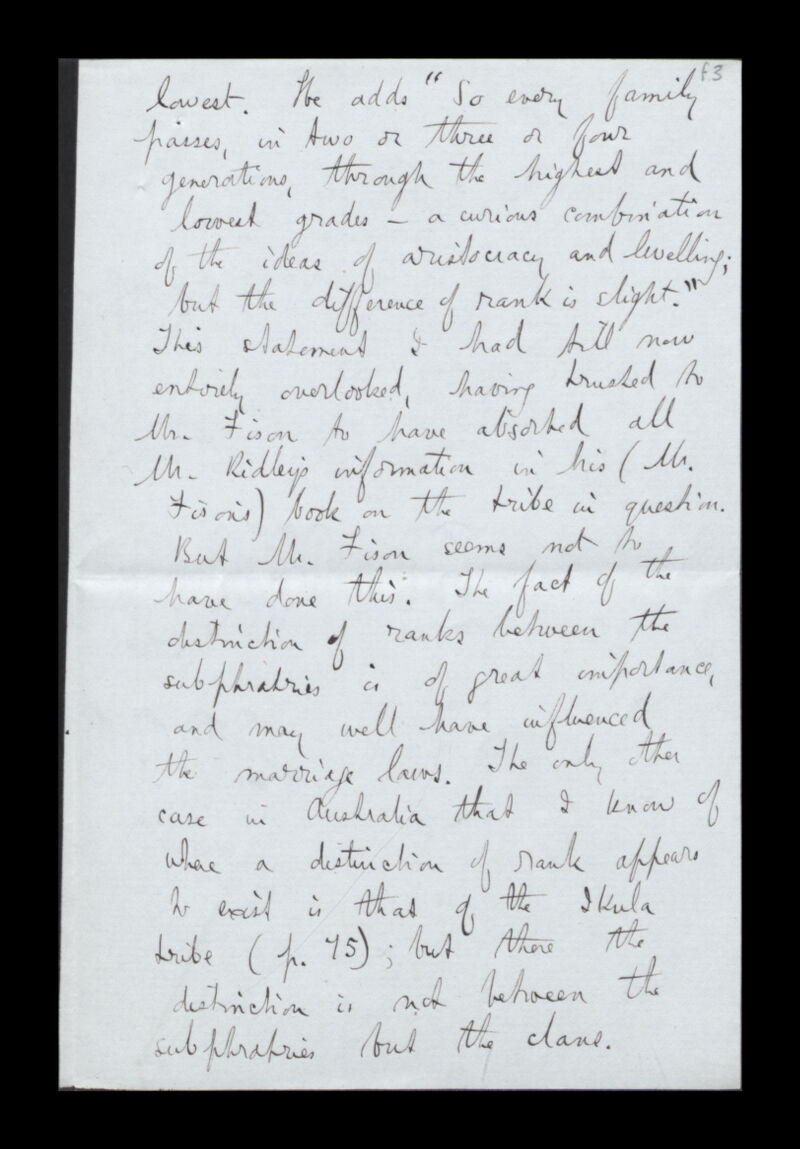 f3
lowest. He adds "So every family
passes, in two or three or four
generations, through the highest and
lowest grades – a curious combination
of the ideas of aristocracy and levelling;
but the difference of rank is slight."
This statement I had till now
entirely overlooked, having trusted to
Mr. Fison to have absorbed all
Mr. Ridley's information in his (Mr.
Fison's) book on the tribe in question.
But Mr. Fison seems not to
have done this. The fact of the
distinction of ranks between the
subphratries is of great importance,
and may well have influenced
the marriage laws. The only other
case in Australia that I know of
where a distinction of rank appears
to exist is that of the Ikula
tribe (p. 75); but there the
distinction is not between the
subphratries but the clans.